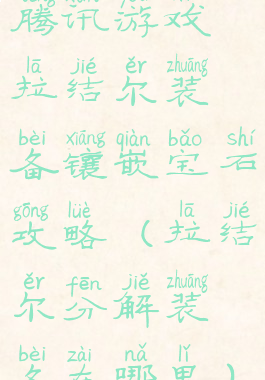 腾讯游戏
lā jié ěr zhuāng
拉结尔装
bèi xiāng qiàn bǎo shí
备镶嵌宝石
gōng lüè lā jié
攻略（拉结
ěr fēn jiě zhuāng
尔分解装
bèi zài nǎ lǐ
备在哪里）